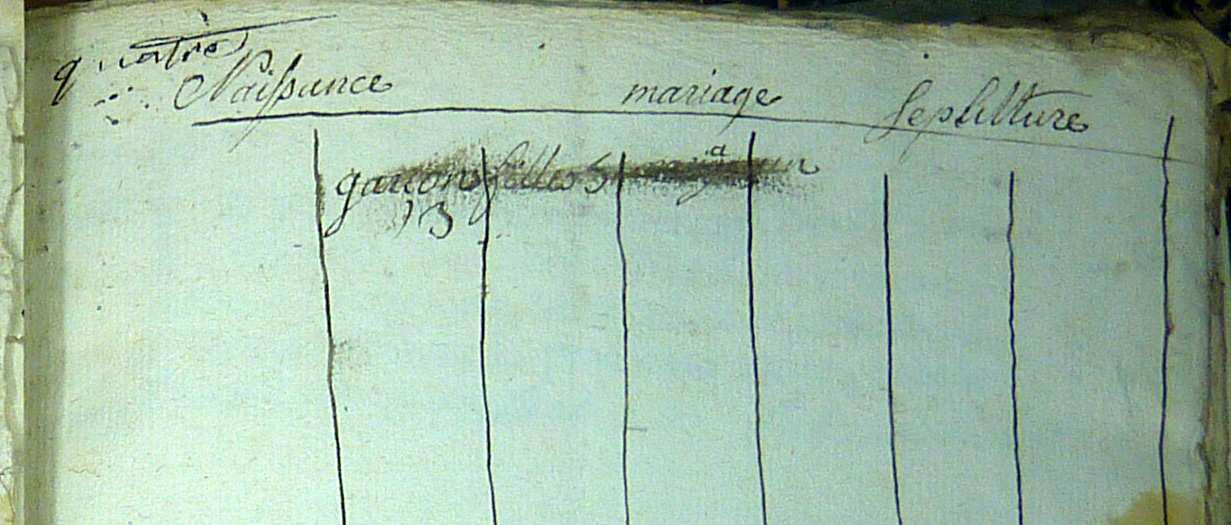 quatre
Naissance mariage Sepulture
garcons filles
13